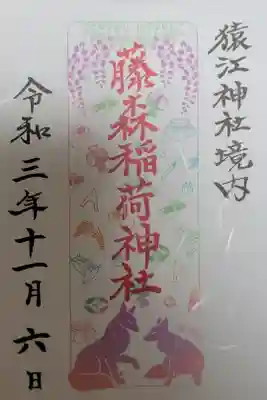 猿江神社境内
藤森稲荷神社
令和三年十一月六日